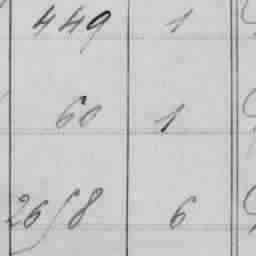 449 1
60 1
2658 6